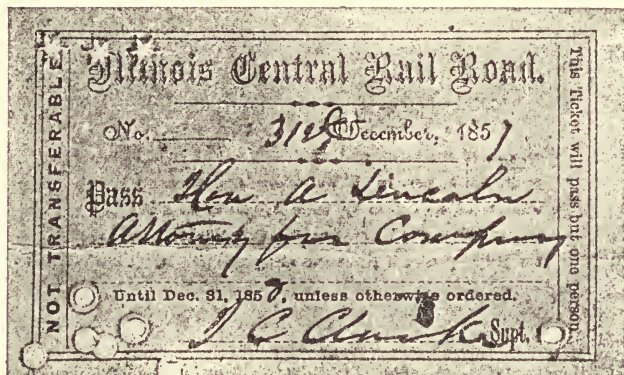 Illinois Central Rail Road.
No. 31st December, 1857
Pass Hon A Lincoln
Attorney for Company
Until Dec. 31, 1858, unless otherwise ordered.
J C Clark Supt.
NOT TRANSFERABLE
This Ticket will pass but one person.